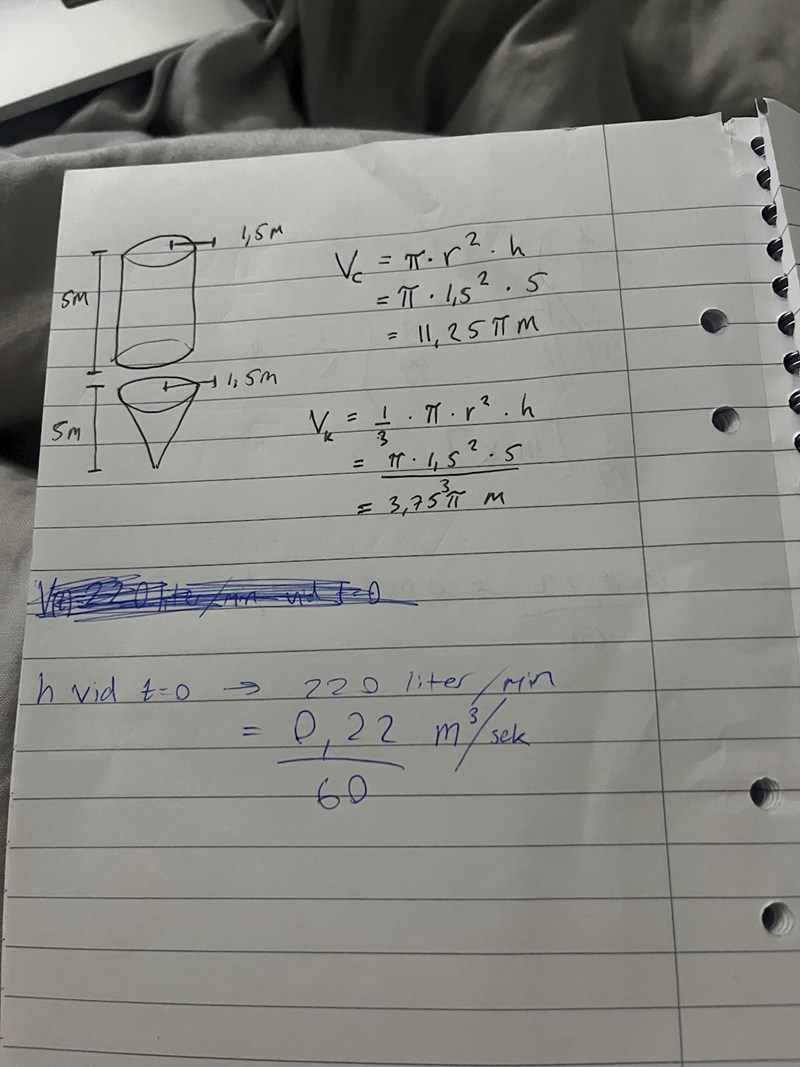 1,5m
5m
V_c = π · r² · h
= π · 1,5² · 5
= 11,25 π m
1,5m
5m
V_k = 1/3 · π · r² · h
= π · 1,5² · 5 / 3
= 3,75 π m
V(t) = 220 liter/min vid t=0
h vid t=0 → 220 liter/min
= 0,22 / 60 m³/sek